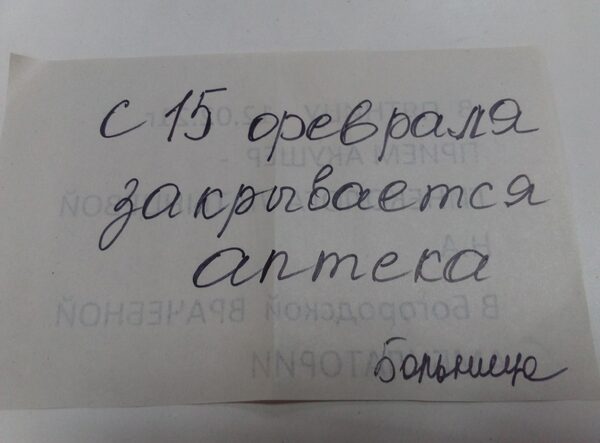 с 15 февраля
закрывается
аптека
Больница